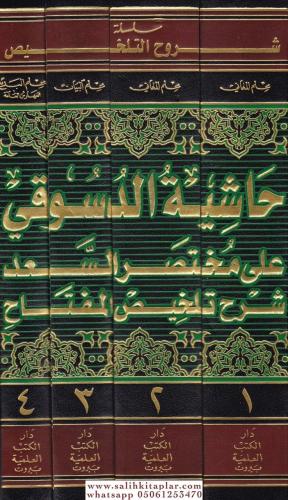 سلسلة
شروح التلخيص
علم المعاني
علم المعاني
علم البيان
علم البديع
حاشية الدسوقي
على مختصر السعد
شرح تلخيص المفتاح
١
٢
٣
٤
دار
الكتب
العلمية
بيروت
دار
الكتب
العلمية
بيروت
دار
الكتب
العلمية
بيروت
دار
الكتب
العلمية
بيروت
www.salihkitaplar.com
whatsapp 05061253470